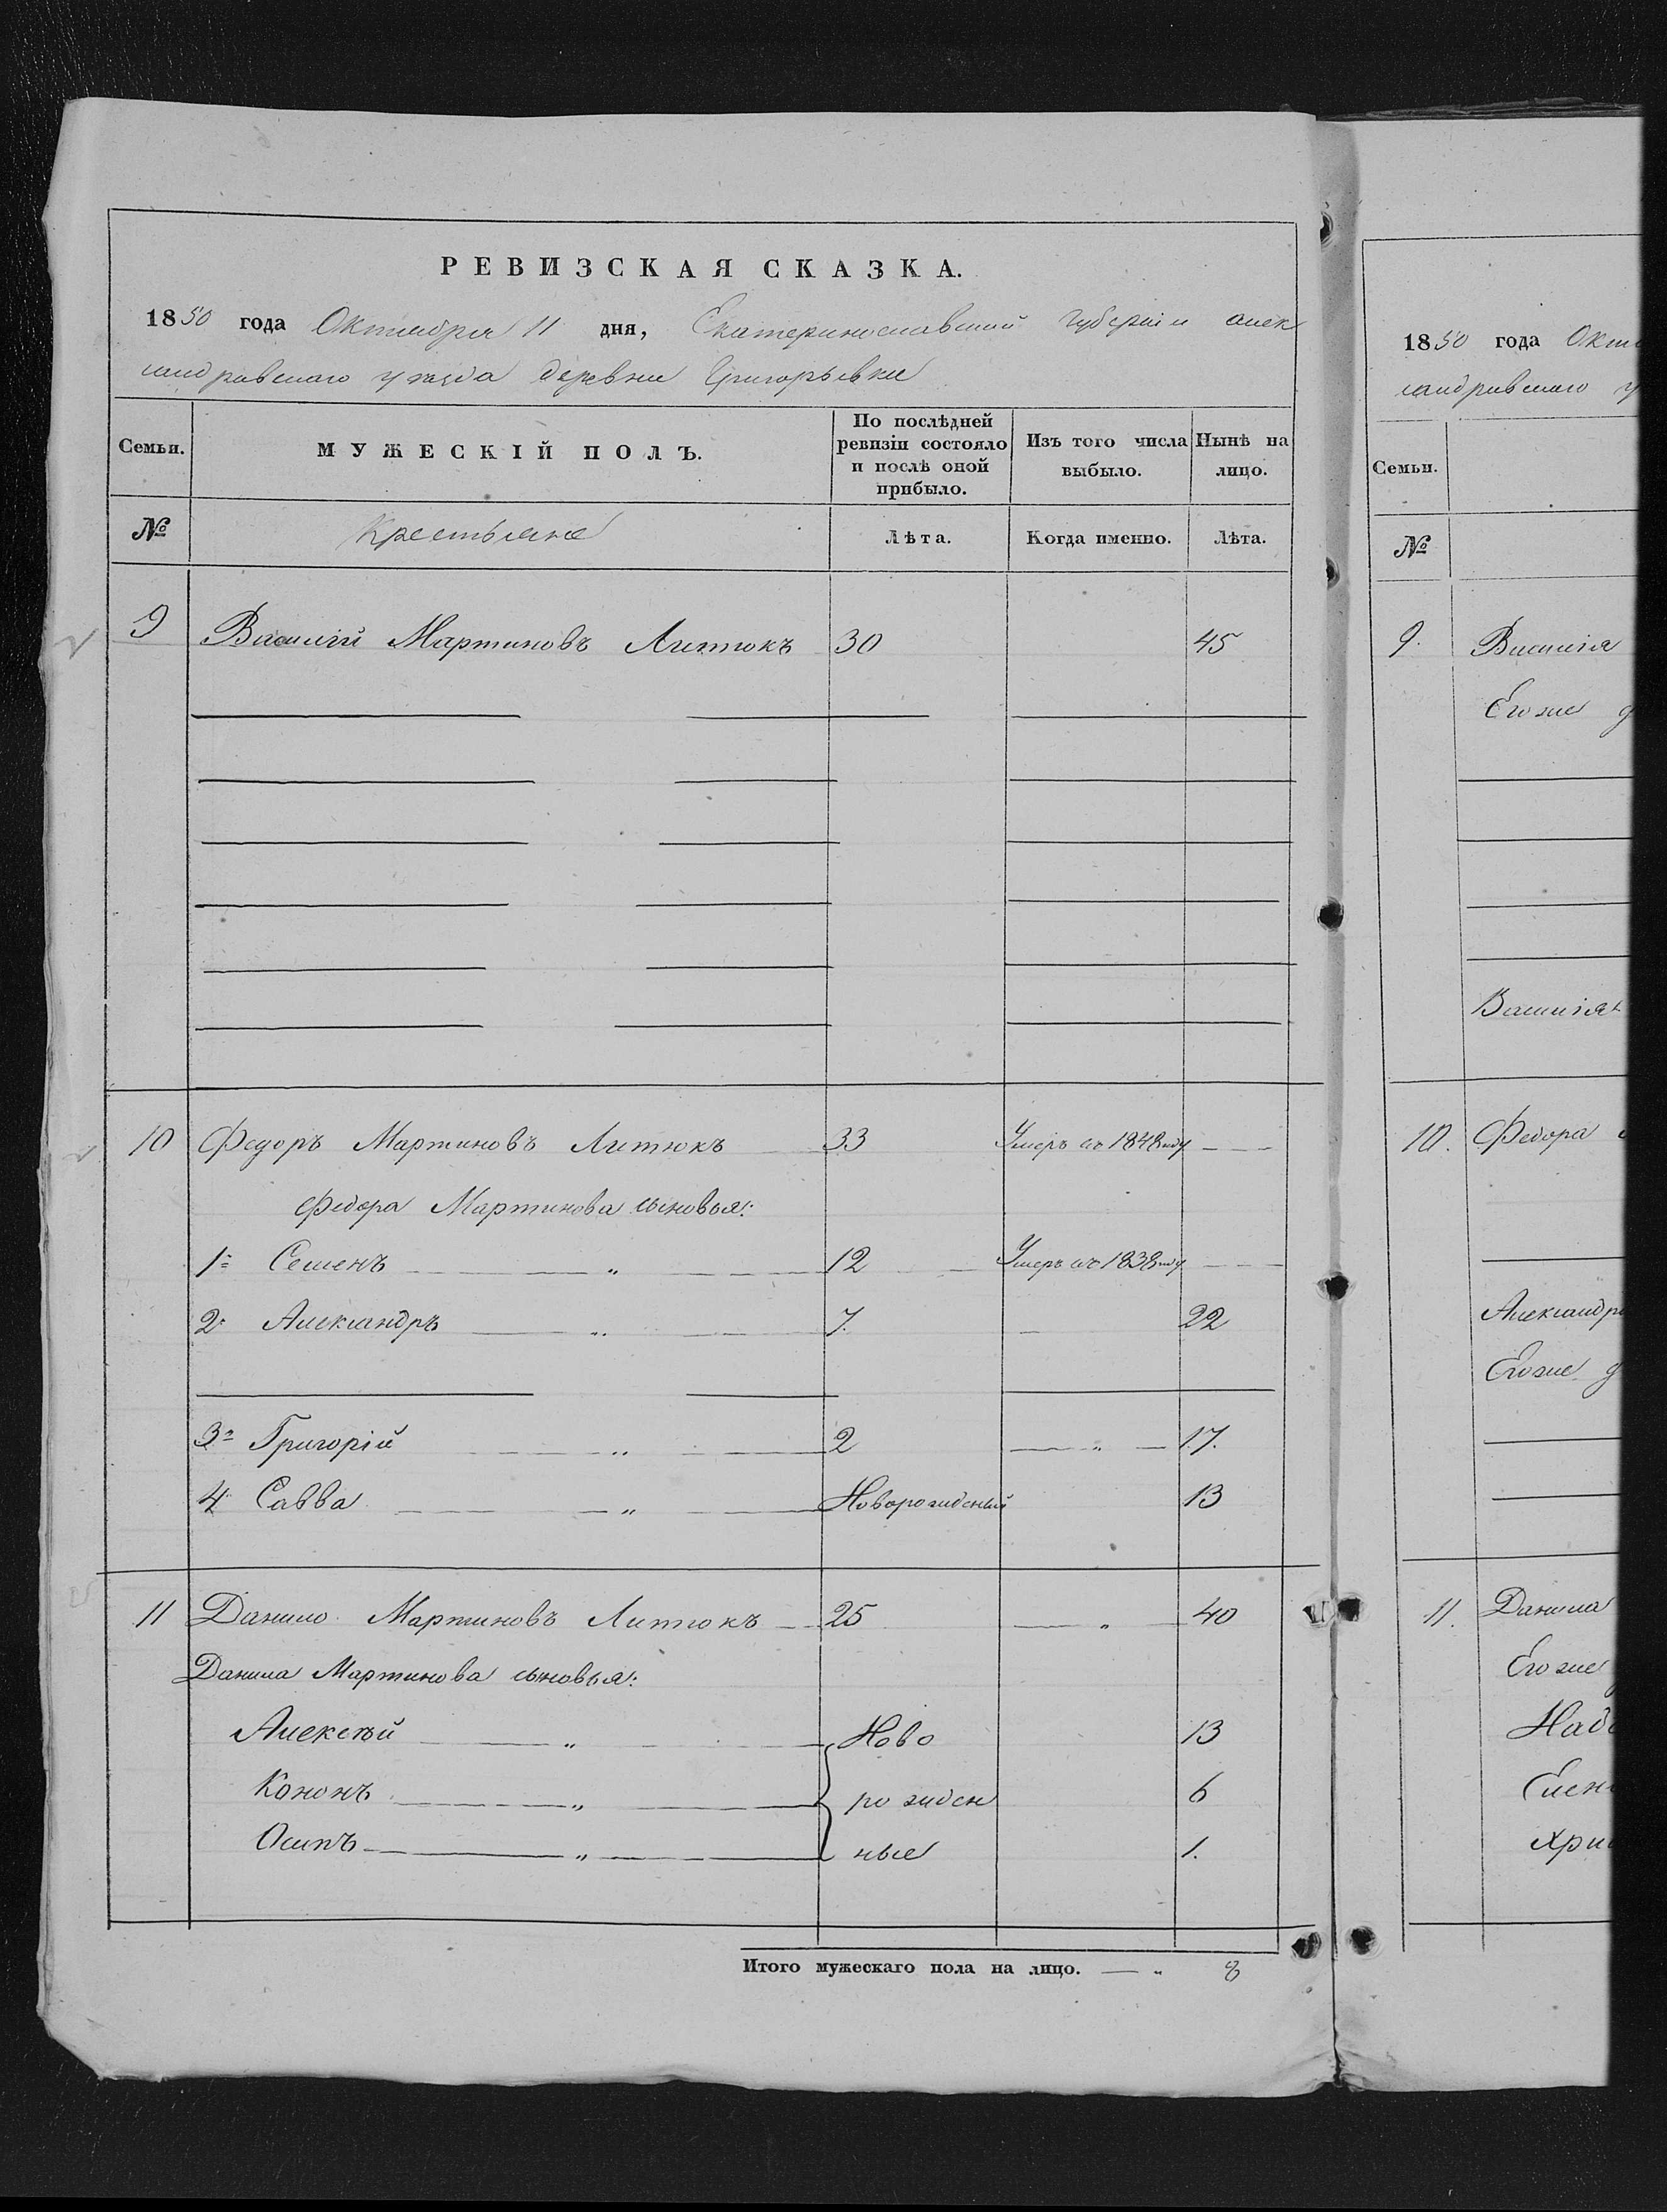 РЕВИЗСКАЯ СКАЗКА.
1850 года Октября 11 дня, Екатеринославской губернiи алек
сандровскаго уѣзда деревни Григорьевки
Семьи. МУЖЕСКIЙ ПОЛЪ. По послѣдней ревизiи состояло и послѣ оной прибыло. Изъ того числа выбыло. Нынѣ на лицо.
№ Крестьяне Лѣта. Когда именно. Лѣта.
9 Василiй Мартиновъ Литюкъ 30 45
10 Федоръ Мартиновъ Литюкъ 33 Умеръ въ 1848 году
Федора Мартинова сыновья:
1й Семенъ " 12 Умеръ въ 1838 году
2й Александръ " 7. 22
3й Григорiй " 2 " 17.
4й Савва " Новорожденый 13
11 Данило Мартиновъ Литюкъ 25 " 40
Данила Мартинова сыновья:
Алексѣй " Ново 13
Кононъ " рожден 6
Осипъ " ные 1.
Итого мужескаго пола на лицо. " 8
1850 года Октя
сандровскаго у
Семьи.
№
9. Василiя
Егоже д
Василiя
10. Федора
Александра
Егоже д
11. Данила
Егоже
Наде
Елен
Хри